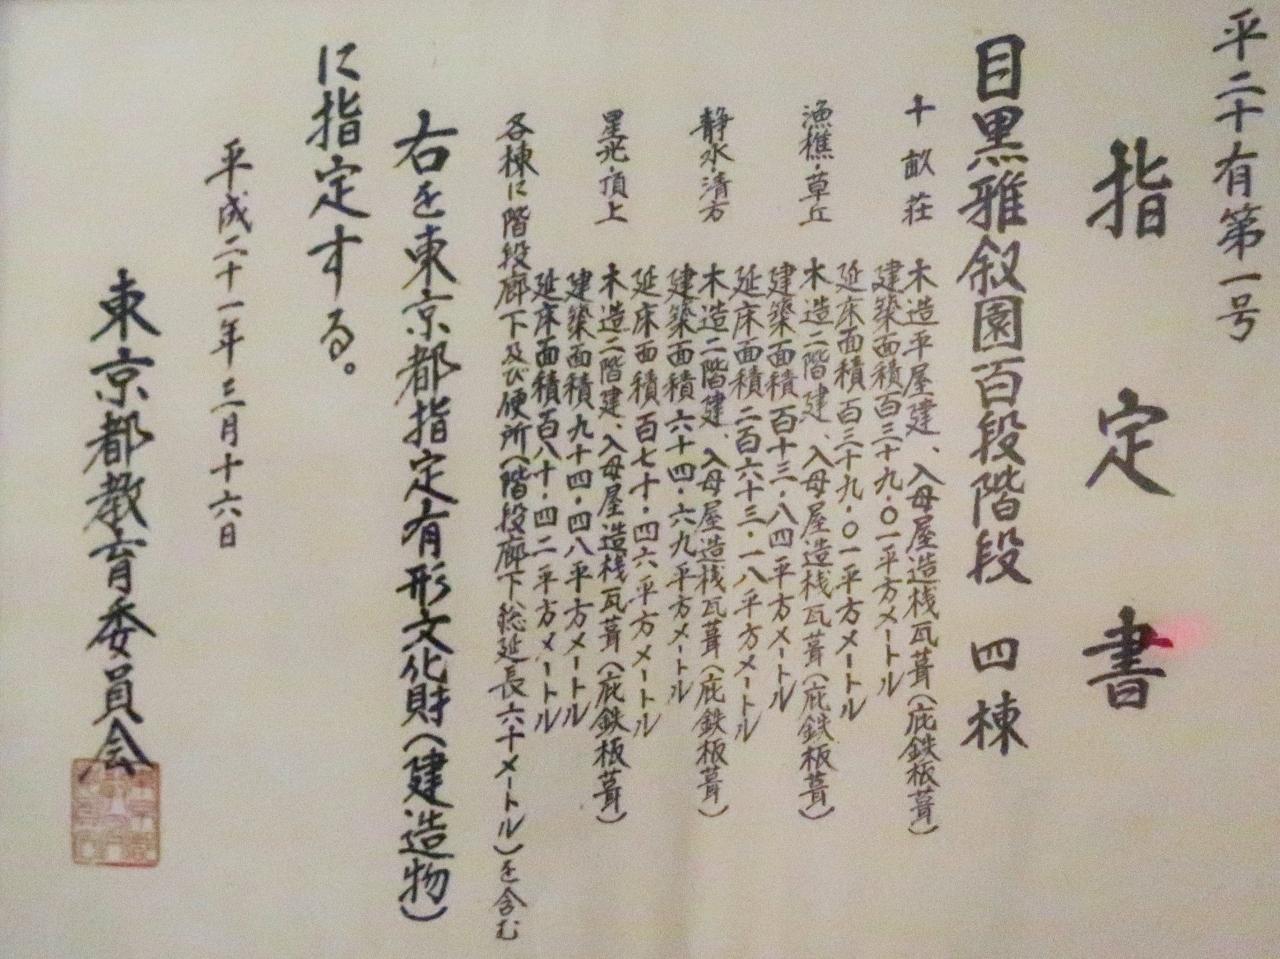 平二十有第一号
指定書
目黒雅叙園百段階段 四棟
十畝荘 木造平屋建、入母屋造桟瓦葺(庇鉄板葺)
建築面積百三十九・〇一平方メートル
延床面積百三十九・〇一平方メートル
漁樵・草丘 木造二階建、入母屋造桟瓦葺(庇鉄板葺)
建築面積百十三・八四平方メートル
延床面積二百六十三・一八平方メートル
静水・清方 木造二階建、入母屋造桟瓦葺(庇鉄板葺)
建築面積六十四・六九平方メートル
延床面積百七十・四六平方メートル
星光・頂上 木造二階建、入母屋造桟瓦葺(庇鉄板葺)
建築面積九十四・四八平方メートル
延床面積百八十・四二平方メートル
各棟に階段廊下及び便所(階段廊下総延長六十メートル)を含む
右を東京都指定有形文化財(建造物)
に指定する。
平成二十一年三月十六日
東京都教育委員会